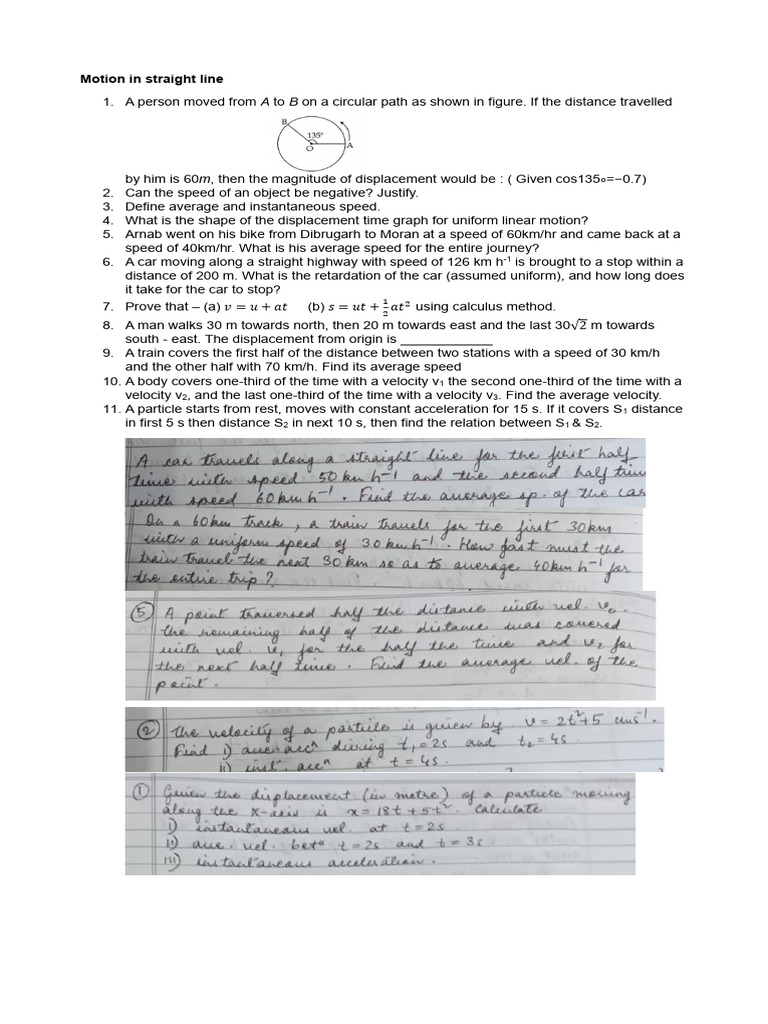 Motion in straight line
1. A person moved from A to B on a circular path as shown in figure. If the distance travelled
B
135°
O
A
by him is 60m, then the magnitude of displacement would be : ( Given cos135∘=−0.7)
2. Can the speed of an object be negative? Justify.
3. Define average and instantaneous speed.
4. What is the shape of the displacement time graph for uniform linear motion?
5. Arnab went on his bike from Dibrugarh to Moran at a speed of 60km/hr and came back at a
speed of 40km/hr. What is his average speed for the entire journey?
6. A car moving along a straight highway with speed of 126 km h⁻¹ is brought to a stop within a
distance of 200 m. What is the retardation of the car (assumed uniform), and how long does
it take for the car to stop?
7. Prove that – (a) v = u + at (b) s = ut + ½at² using calculus method.
8. A man walks 30 m towards north, then 20 m towards east and the last 30√2 m towards
south - east. The displacement from origin is ______________
9. A train covers the first half of the distance between two stations with a speed of 30 km/h
and the other half with 70 km/h. Find its average speed
10. A body covers one-third of the time with a velocity v₁ the second one-third of the time with a
velocity v₂, and the last one-third of the time with a velocity v₃. Find the average velocity.
11. A particle starts from rest, moves with constant acceleration for 15 s. If it covers S₁ distance
in first 5 s then distance S₂ in next 10 s, then find the relation between S₁ & S₂.
A car travels along a straight line for the first half
time with speed 50 km h⁻¹ and the second half tim
with speed 60 km h⁻¹. Find the average sp. of the car
On a 60km track, a train travels for the first 30km
with a uniform speed of 30 km h⁻¹. How fast must the
train travel the next 30 km so as to average 40km h⁻¹ for
the entire trip?
⑤ A point traversed half the distance with vel. v₀.
the remaining half of the distance was covered
with vel. v₁ for the half the time and v₂ for
the next half time. Find the average vel. of the
point.
② The velocity of a particle is given by v = 2t²+5 cms⁻¹.
Find i) ave. accⁿ during t₁ = 2s and t₂ = 4s.
ii) inst. accⁿ at t = 4s.
① Given the displacement (in metre) of a particle moving
along the X-axis is x = 18t + 5t². Calculate
i) instantaneous vel. at t = 2s.
ii) ave. vel. betⁿ t = 2s and t = 3s.
iii) instantaneous acceleration.